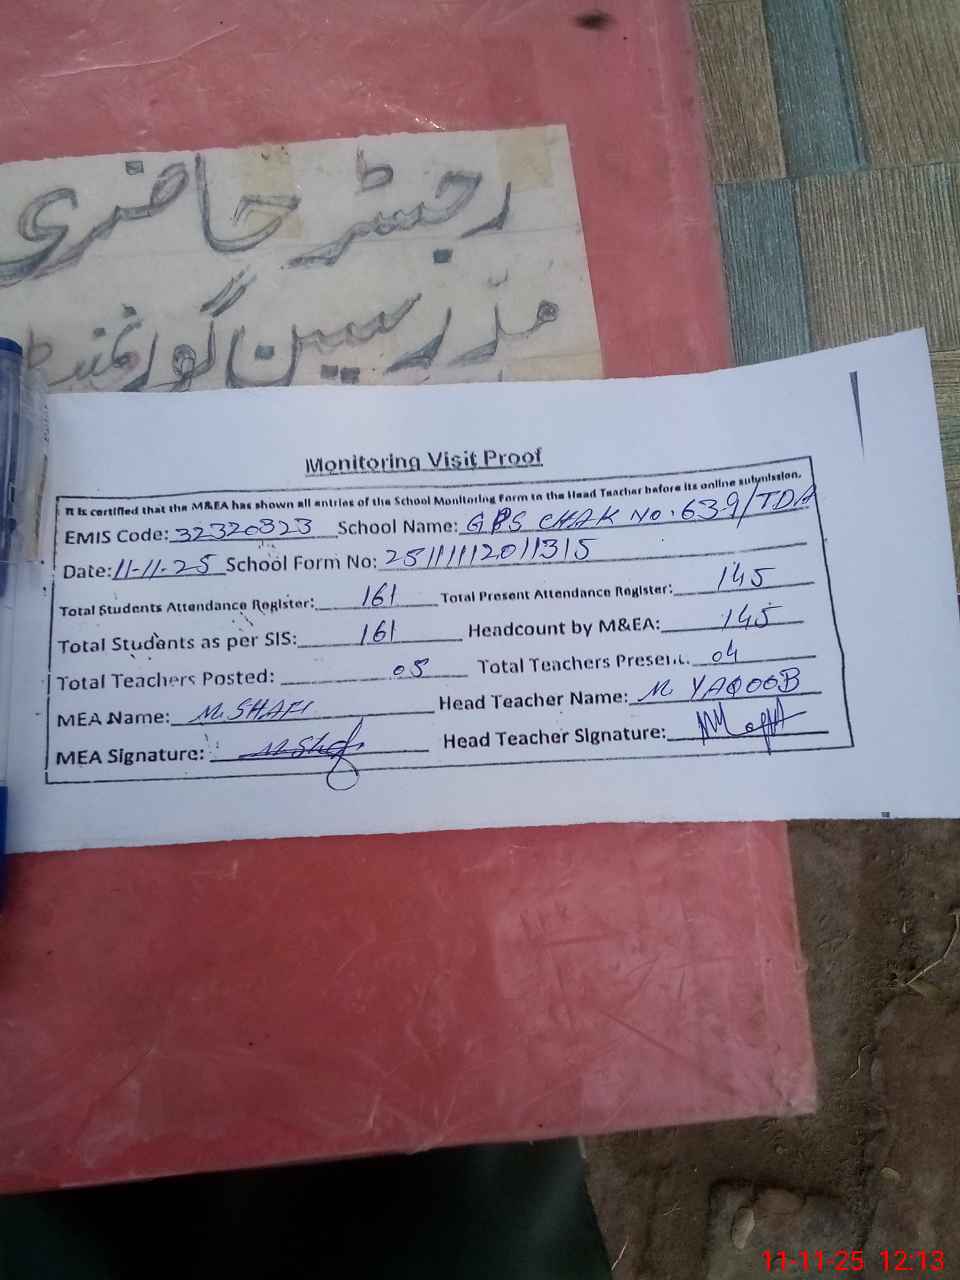 رجسٹر حاضری
مدّرسین گورنمنٹ
Monitoring Visit Proof
It is certified that the M&EA has shown all entries of the School Monitoring Form to the Head Teacher before its online submission.
EMIS Code: 32320823 School Name: GPS CHAK No. 639/TDA
Date: 11-11-25 School Form No: 25111112011315
Total Students Attendance Register: 161 Total Present Attendance Register: 145
Total Students as per SIS: 161 Headcount by M&EA: 145
Total Teachers Posted: 05 Total Teachers Present: 04
MEA Name: M. SHAFI Head Teacher Name: M YAQOOB
MEA Signature: Head Teacher Signature:
11-11-25 12:13